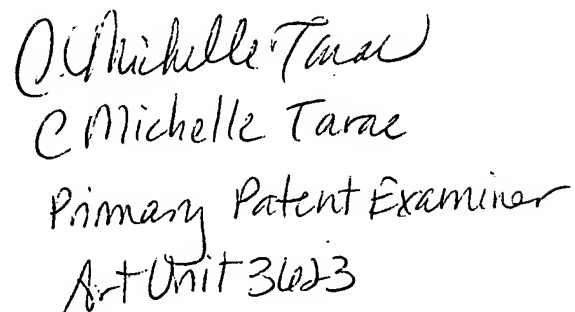 C. Michelle Tarae
C Michelle Tarae
Primary Patent Examiner
Art Unit 3623